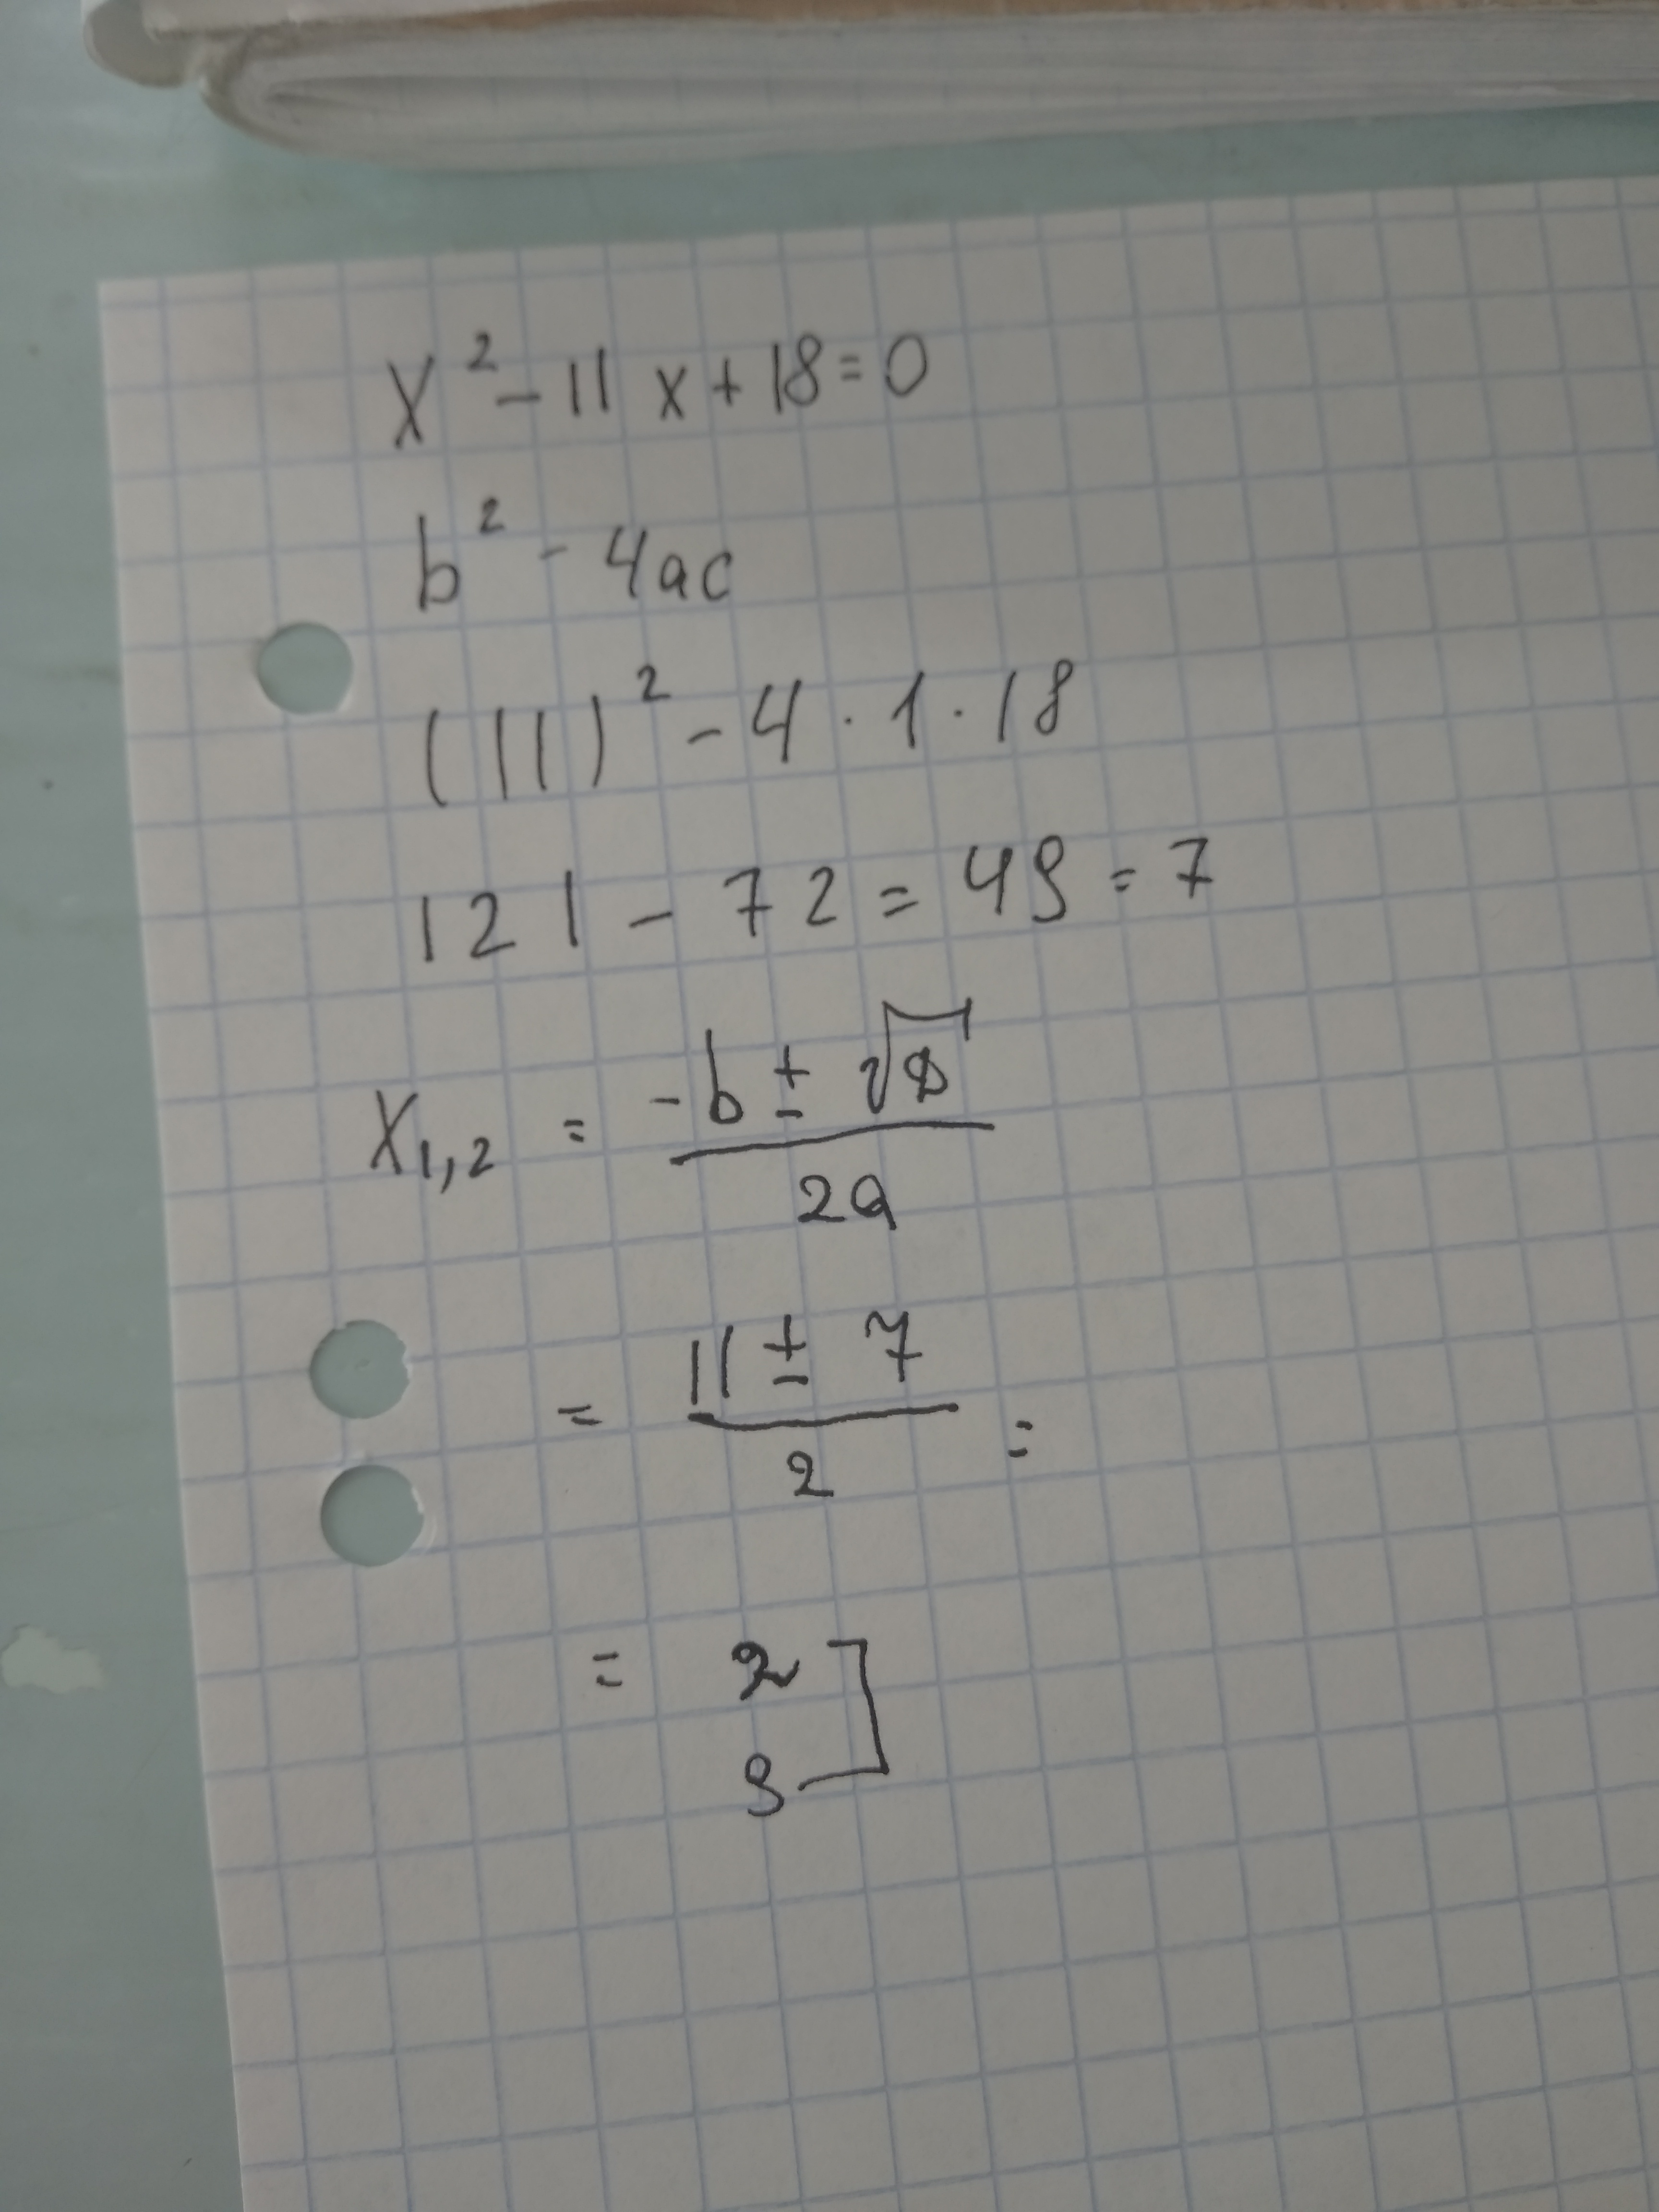 x² - 11x + 18 = 0
b² - 4ac
(11)² - 4 · 1 · 18
121 - 72 = 49 = 7
x₁,₂ = (-b ± √D) / 2a
= (11 ± 7) / 2 =
= 2
9